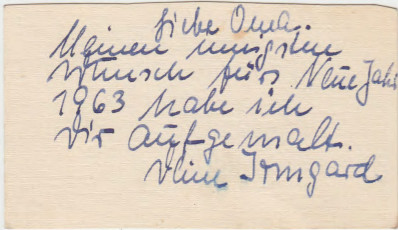 Liebe Oma.
Meinen innigsten
Wunsch fürs Neue Jahr
1963 habe ich
Dir aufgemalt.
Deine Irmgard